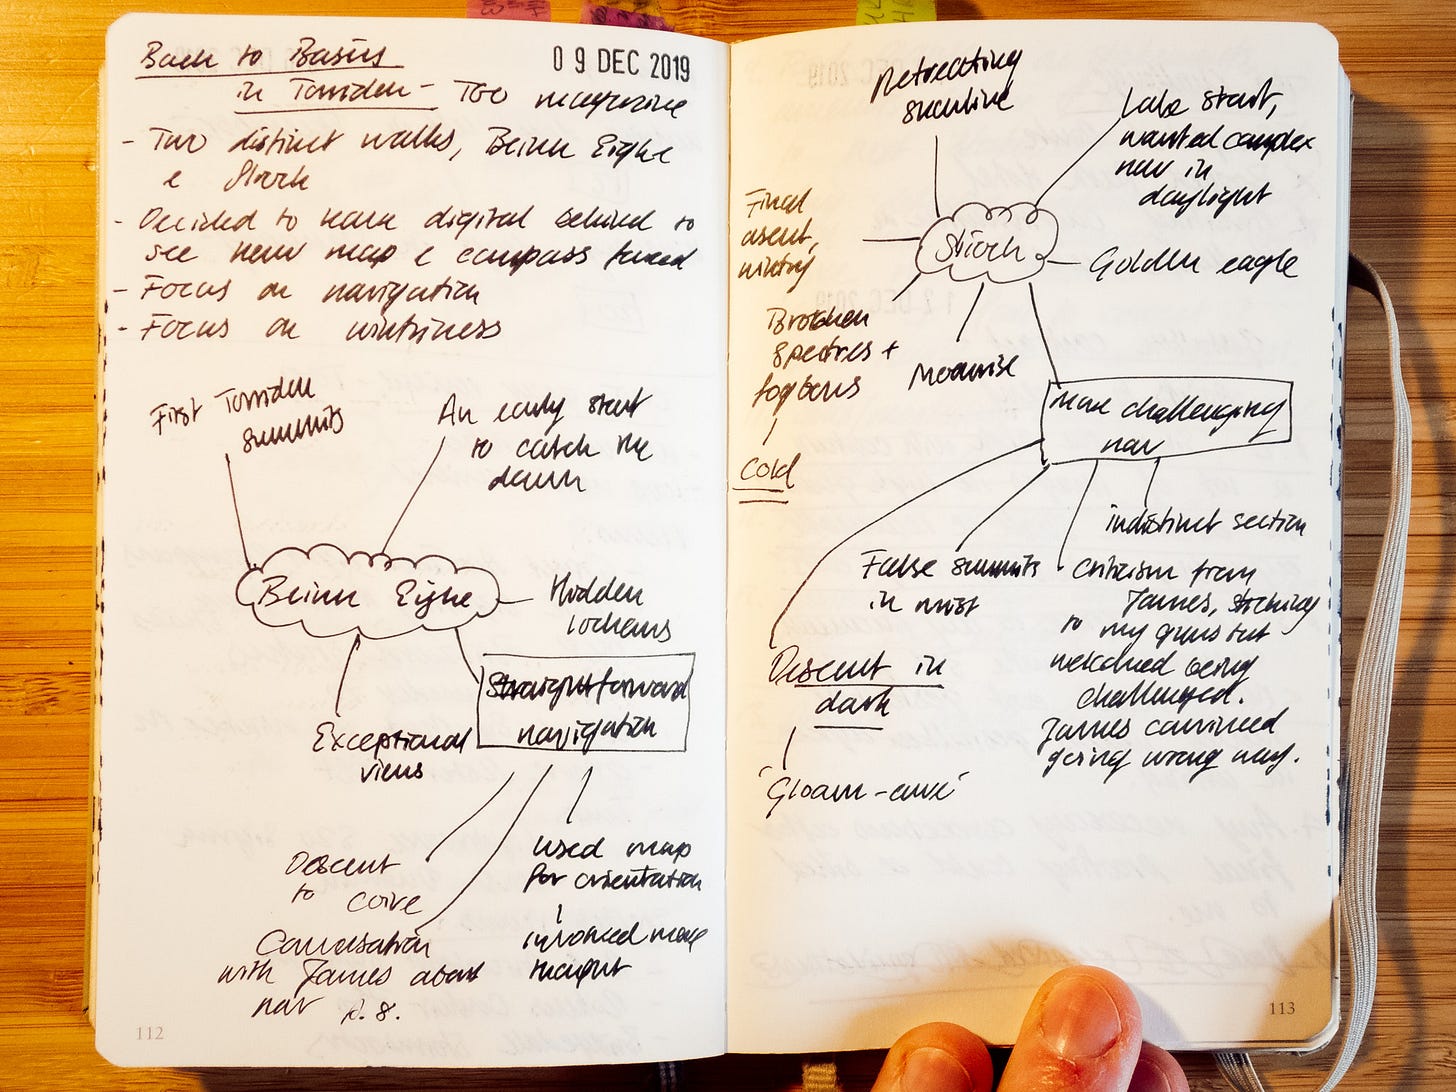 Back to Basics
09 DEC 2019
in Torridon - TGO magazine
- Two distinct walks, Beinn Eighe
& Slioch
- Decided to leave digital behind to
see how map & compass fared
- Focus on navigation
- Focus on wintriness
First Torridon
summits
An early start
to catch the
dawn
Beinn Eighe
Hidden
lochans
Straightforward
navigation
Exceptional
views
Descent
to coire
Conversation
with James about
nav p.8.
used map
for orientation
involved more
thought
112
Retreating
sunline
Late start,
wanted complex
nav in
daylight
Final
ascent,
wintry
Slioch
Golden eagle
Brocken
spectres +
fogbows
Moonrise
cold
More challenging
nav
indistinct section
False summits
in mist
Criticism from
James, sticking
to my guns but
welcomed being
challenged.
James convinced
going wrong way.
Descent in
dark
'Gloam-
113